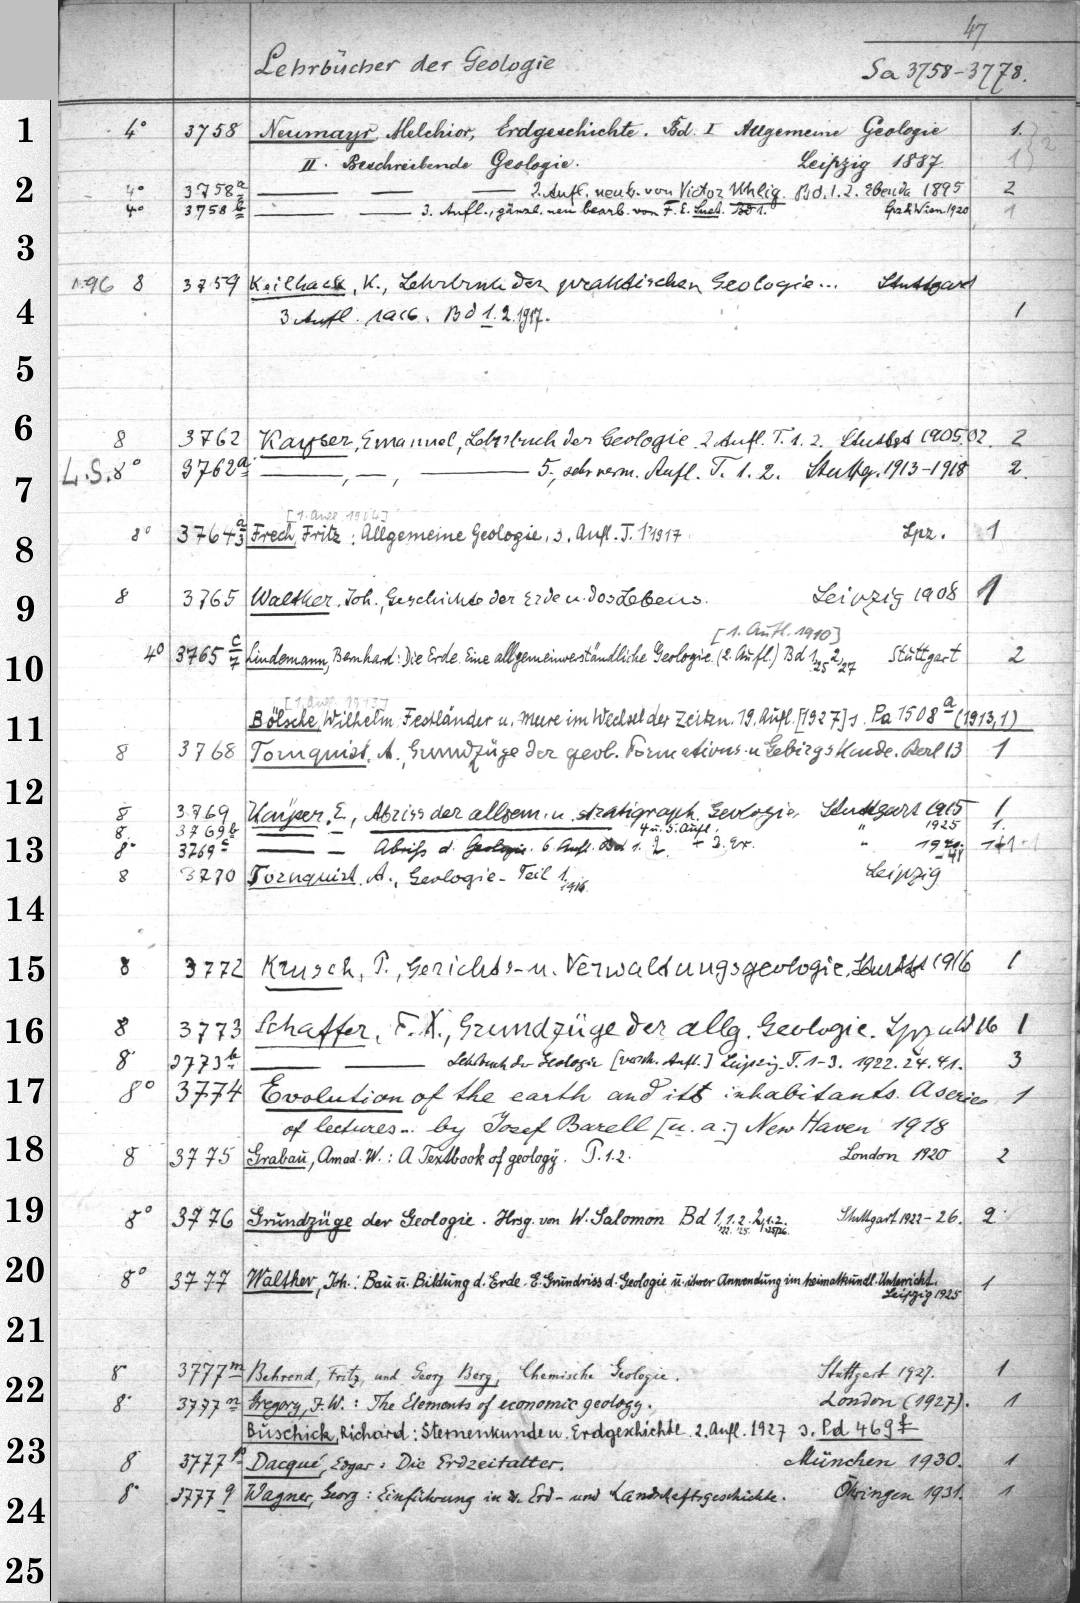 47
Lehrbücher der Geologie Sa 3758-3778.
1 4° 3758 Neumayr, Melchior, Erdgeschichte. Bd. I Allgemeine Geologie 1.
II. Beschreibende Geologie. Leipzig 1887 1 } 2
2 4° 3758a 2. Aufl. neub. von Victor Uhlig. Bd. 1. 2. Ebenda 1895 2
4° 3758b 3. Aufl., gänzl. neu bearb. von F. E. Suess. Bd 1. Lpz & Wien 1920 1
3
8 3759 Keilhack, K., Lehrbuch der praktischen Geologie... Stuttgart
4 3 Aufl. Bd 1. 2. 1917. 1
5
6 8 3762 Kayser, Emanuel, Lehrbuch der Geologie. 2 Aufl. T. 1. 2. Stuttgt 1905.02. 2
L.S. 8° 3762a —, —, — 5., sehr verm. Aufl. T. 1. 2. Stuttg. 1913-1918 2.
7
[1. Aufl. 1904]
8 8° 3764 a/3 Frech, Fritz: Allgemeine Geologie. 3. Aufl. T. 1 1917 Lpz. 1
9 8 3765 Walther, Joh., Geschichte der Erde u. des Lebens. Leipzig 1908 1
[1. Aufl. 1910]
10 4° 3765 c/7 Lindemann, Bernhard: Die Erde. Eine allgemeinverständliche Geologie. (2. Aufl.) Bd 1, 25 2, 27 Stuttgart 2
11 Bölsche, Wilhelm Festländer u. Meere im Wechsel der Zeiten. 19. Aufl. [1927] s. Pa 1508a (1913,1)
8 3768 Tornquist, A., Grundzüge der geol. Formations- u Gebirgskunde. Berl 13 1
12
8 3769 Kayser, E., Abriss der allgem. u. stratigraph. Geologie. Stuttgart 1915 1
8. 3769b — — 4 u. 5. Aufl. " 1925 1.
13 8° 3769c — — Abriß d. Geologie. 6. Aufl. Bd 1. 2. + 3. Ex. "
8 3770 Tornquist, A., Geologie - Teil 1. 1916 Leipzig
14
15 8 3772 Krusch, P., Gerichts- u. Verwaltungsgeologie. Stuttgt 1916 1
16 8 3773 Schaffer, F. X., Grundzüge der allg. Geologie. 16 1
8° 3773b — — Lehrbuch der Geologie Leipzig. T. 1-3. 1922. 24. 41. 3
17 8° 3774 Evolution of the earth and its inhabitants. A series 1
of lectures... by Josef Barell [u. a.] New Haven 1918
18 8 3775 Grabau, Amad. W.: A Textbook of geology. P. 1. 2. London 1920 2
19 8° 3776 Grundzüge der Geologie. Hrsg. von W. Salomon Bd 1, 1. 2. 2, 1. 2. Stuttgart 1922-26. 2
20 8° 3777 Walther, Joh.: Bau u. Bildung d. Erde. E. Grundriss d. Geologie u. ihrer Anwendung im heimatkundl. Unterricht. 1
Leipzig 1925
21
22 8° 3777m Behrend, Fritz, und Georg Berg, Chemische Geologie. Stuttgart 1927. 1
8° 3777n Gregory, J. W.: The Elements of economic geology. London (1927). 1
Buschick, Richard: Sternenkunde u. Erdgeschichte 2. Aufl. 1927 s. Pd 469f
23 8 3777p Dacqué, Edgar: Die Erdzeitalter. München 1930. 1
24 8° 3777q Wagner, Georg: Einführung in d. Erd- und Landschaftsgeschichte. Öhringen 1931. 1
25